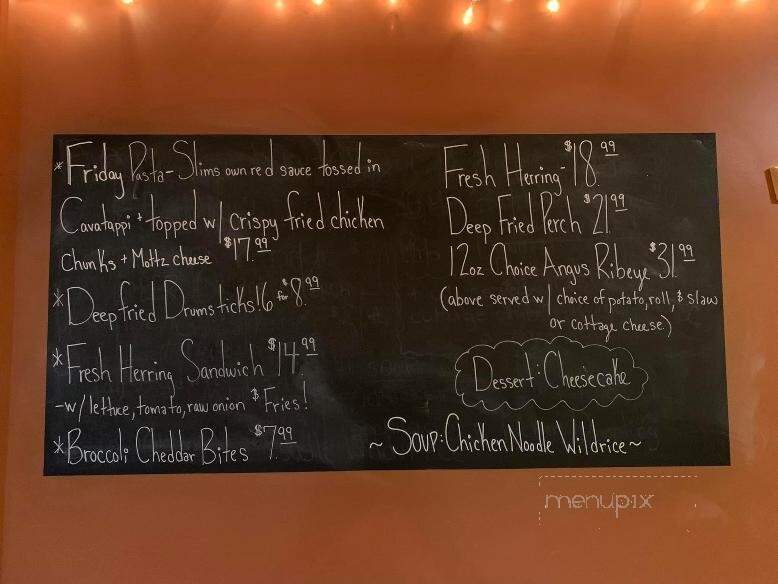 * Friday Pasta - Slims own red sauce tossed in
Cavatappi + topped w/ crispy fried chicken
Chunks + Mottz cheese $17.99
* Deep fried Drumsticks! 6 for $8.99
* Fresh Herring Sandwich $14.99
- w/ lettuce, tomato, raw onion $ Fries!
* Broccoli Cheddar Bites $7.99
Fresh Herring - $18.99
Deep Fried Perch $21.99
12oz Choice Angus Ribeye $31.99
(above served w/ choice of potato, roll, $ slaw
or cottage cheese.)
Dessert: Cheesecake
~ Soup: Chicken Noodle Wildrice ~
menupix